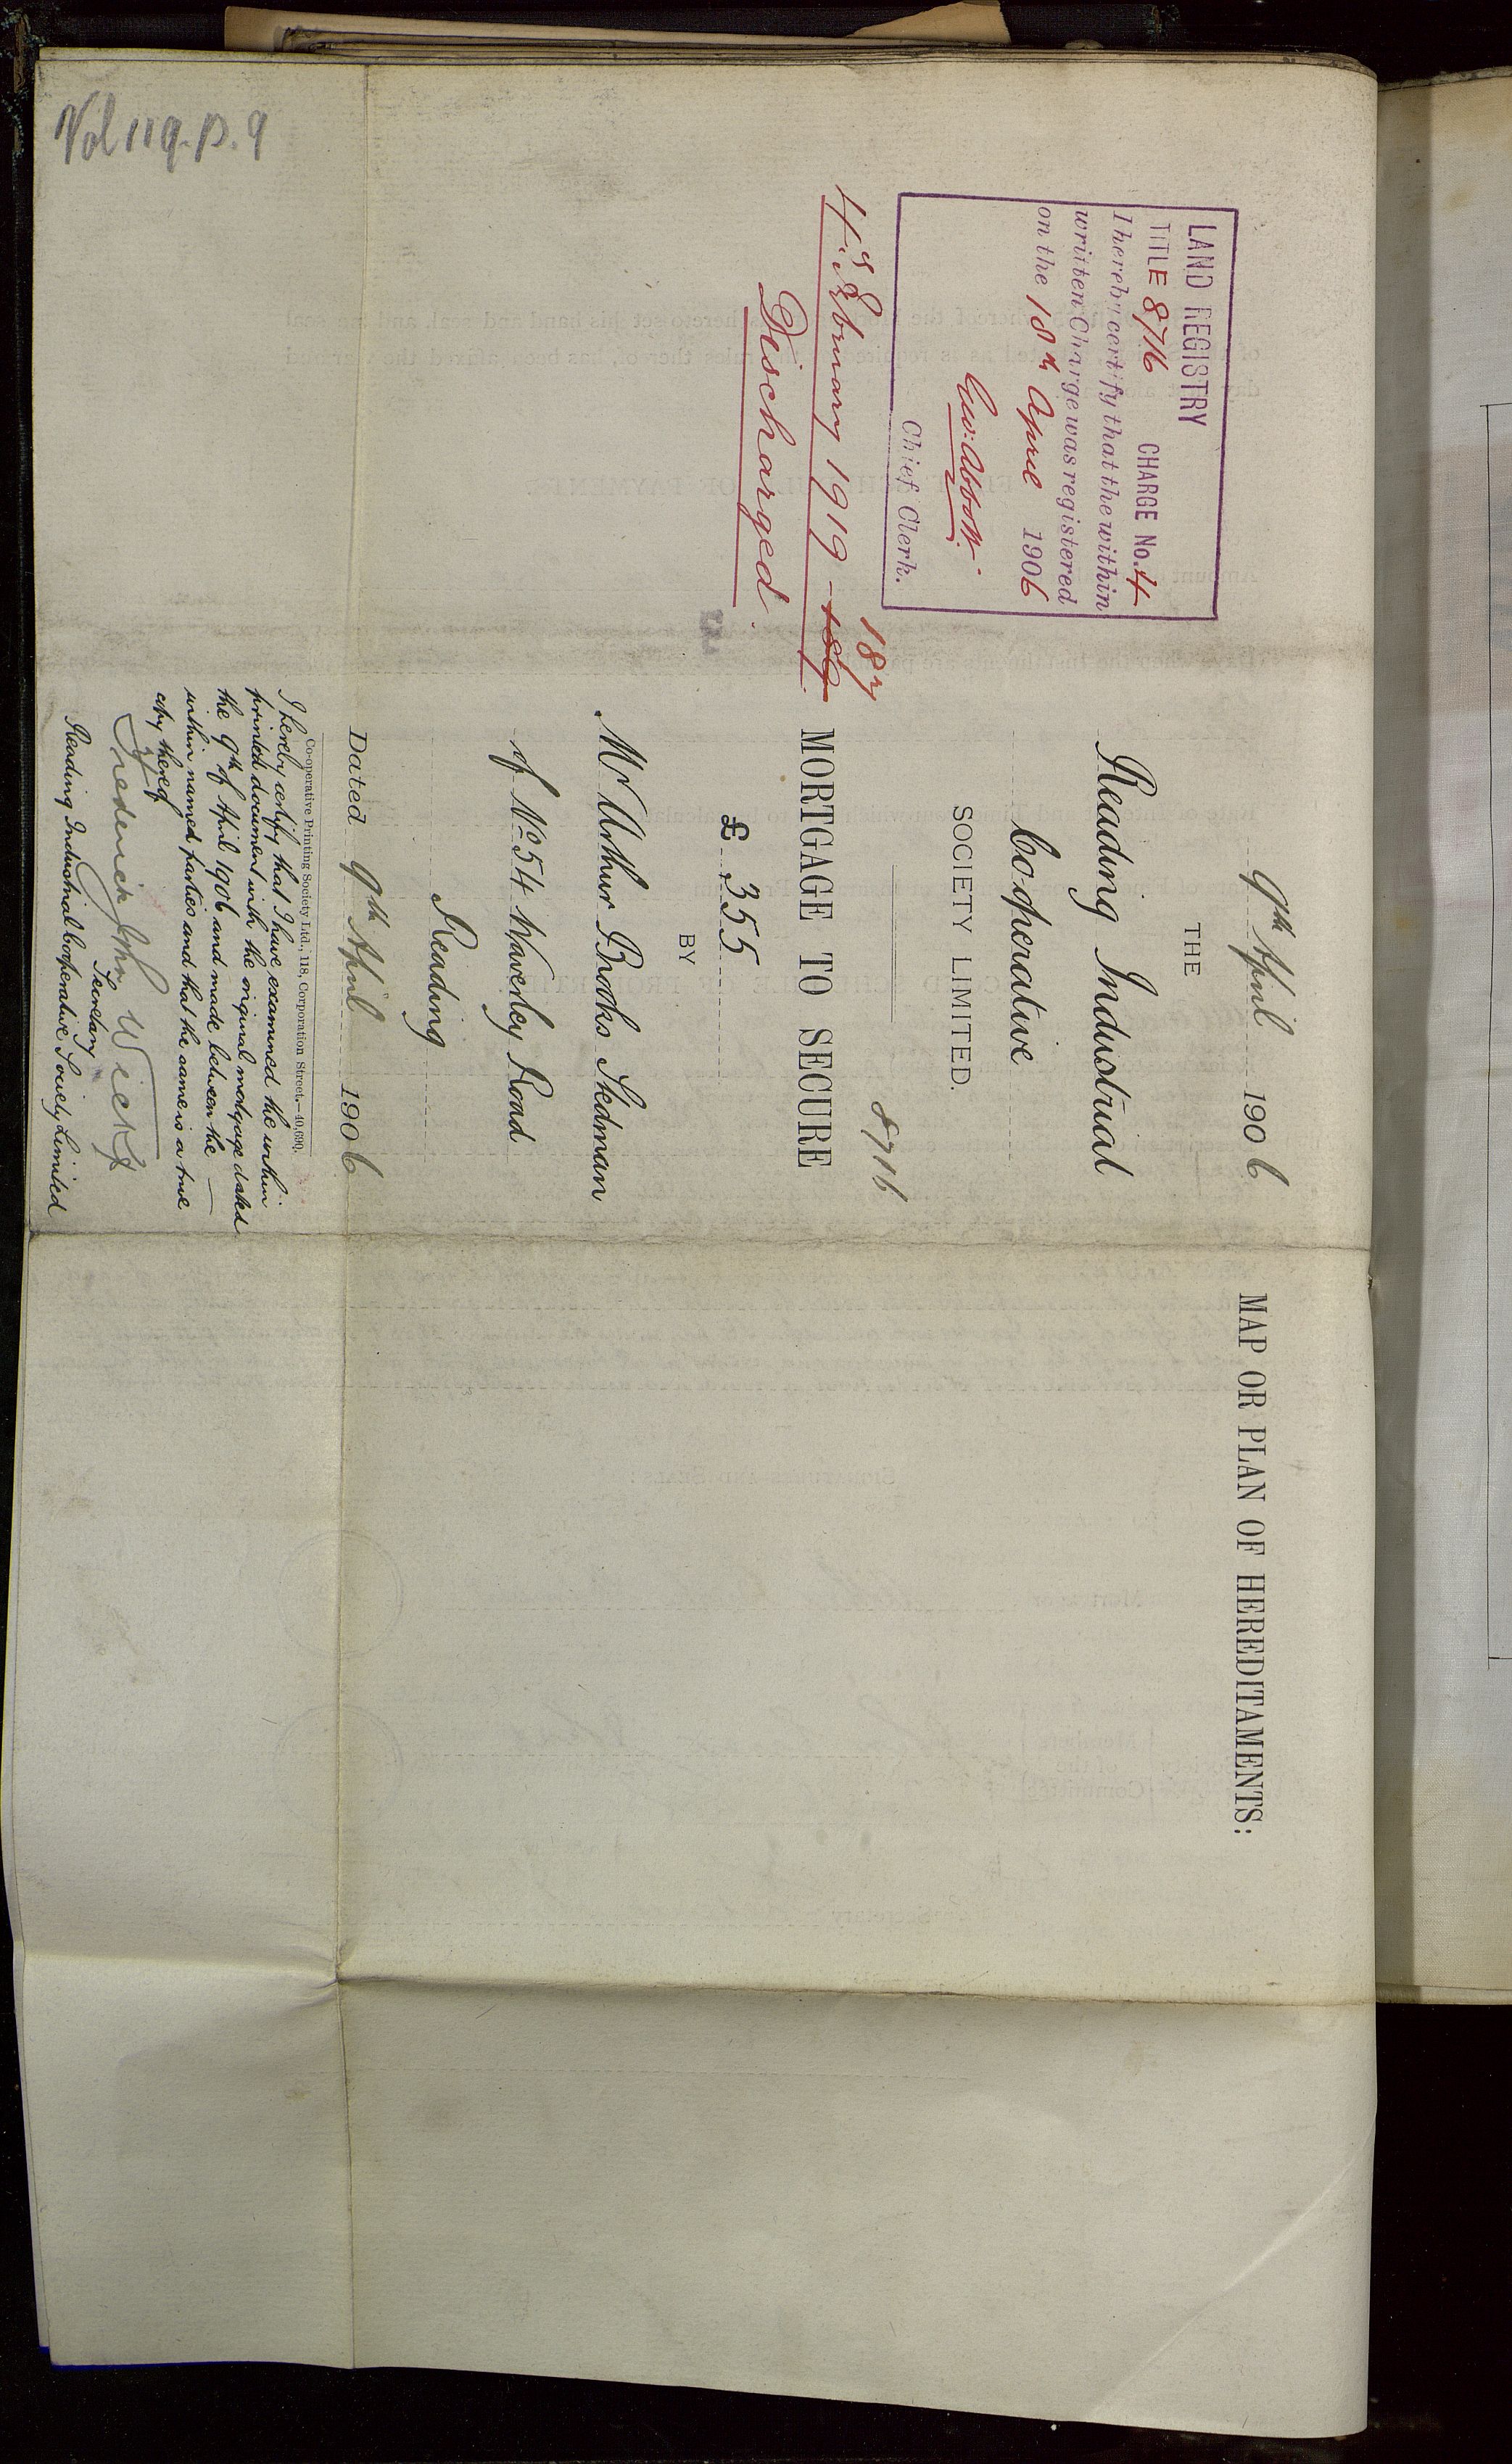 Vol 119. p. 9
LAND REGISTRY
TITLE 8716 CHARGE No. 4
I hereby certify that the within
written Charge was registered
on the 18th April 1906
Chief Clerk.
February 1919
Discharged.
9th April 1906
THE
Reading Industrial
Co-operative
SOCIETY LIMITED.
8716
MORTGAGE TO SECURE
£ 355
BY
Mr Arthur Brooks Stedman
of No 54 Waverley Road
Reading
Dated 9th April 1906
Co-operative Printing Society Ltd., 118, Corporation Street.—40,690.
I hereby certify that I have examined the within
printed document with the original mortgage dated
the 9th of April 1906 and made between the
within named parties and that the same is a true
copy thereof
Frederick John
Secretary
Reading Industrial Cooperative Society Limited
MAP OR PLAN OF HEREDITAMENTS: